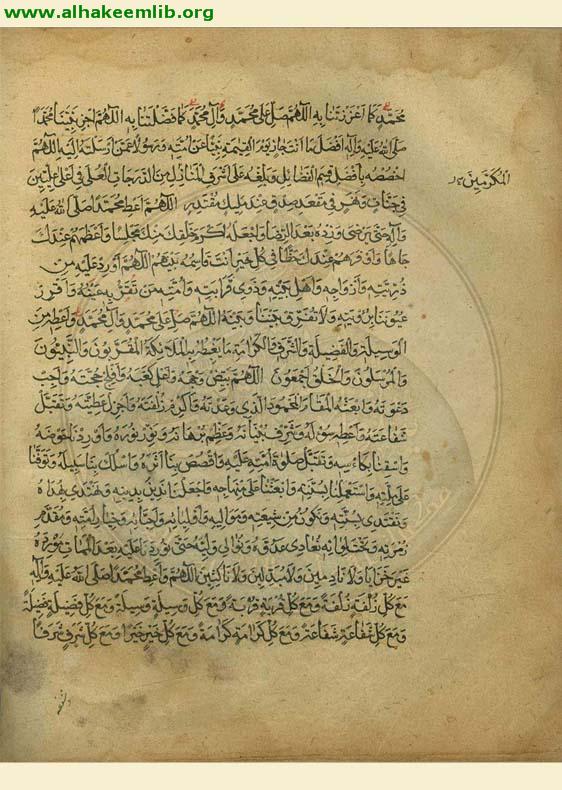 www.alhakeemlib.org
مُحَمَّدٍ كَمَا اَعْزَزْتَنَا بِهِ اَللّٰهُمَّ صَلِّ عَلٰى مُحَمَّدٍ وَآلِ مُحَمَّدٍ كَمَا فَضَّلْتَنَا بِهِ اَللّٰهُمَّ اجْزِ نَبِيَّنَا مُحَمَّدًا
صَلَّى اللهُ عَلَيْهِ وَآلِهِ اَفْضَلَ مَا اَنْتَ جَازٍ يَوْمَ الْقِيٰمَةِ نَبِيًّا عَنْ اُمَّتِهِ وَرَسُولًا عَمَّنْ اَرْسَلْتَهُ اِلَيْهِ اَللّٰهُمَّ
اخْصُصْهُ بِاَفْضَلِ قِسَمِ الْفَضَائِلِ وَبَلِّغْهُ عَلٰى اَشْرَفِ الْمَنَازِلِ مِنَ الدَّرَجَاتِ الْعُلٰى فِي اَعْلٰى عِلِّيِّينَ
الْمُكَرَّمِينَ
فِي جَنَّاتٍ وَنَهَرٍ فِي مَقْعَدِ صِدْقٍ عِنْدَ مَلِيكٍ مُقْتَدِرٍ اَللّٰهُمَّ اَعْطِ مُحَمَّدًا صَلَّى اللهُ عَلَيْهِ
وَآلِهِ حَتّٰى يَرْضٰى وَزِدْهُ بَعْدَ الرِّضَا وَاجْعَلْهُ اَكْرَمَ خَلْقِكَ مِنْكَ مَجْلِسًا وَاَعْظَمَهُمْ عِنْدَكَ
جَاهًا وَاَوْفَرَهُمْ عِنْدَكَ حَظًّا فِي كُلِّ خَيْرٍ اَنْتَ قَاسِمُهُ بَيْنَهُمْ اَللّٰهُمَّ اَوْرِدْ عَلَيْهِ مِنْ
ذُرِّيَّتِهِ وَاَزْوَاجِهِ وَاَهْلِ بَيْتِهِ وَذَوِي قَرَابَتِهِ وَاُمَّتِهِ مَنْ تَقَرُّ بِهِ عَيْنُهُ وَاَقْرِرْ
عُيُونَنَا بِرُؤْيَتِهِ وَلَا تُفَرِّقْ بَيْنَنَا وَبَيْنَهُ اَللّٰهُمَّ صَلِّ عَلٰى مُحَمَّدٍ وَآلِ مُحَمَّدٍ وَاَعْطِهِ مِنَ
الْوَسِيلَةِ وَالْفَضِيلَةِ وَالشَّرَفِ وَالْكَرَامَةِ مَا يَغْبِطُهُ بِهِ الْمَلَائِكَةُ الْمُقَرَّبُونَ وَالنَّبِيُّونَ
وَالْمُرْسَلُونَ وَالْخَلْقُ اَجْمَعُونَ اَللّٰهُمَّ بَيِّضْ وَجْهَهُ وَاَعْلِ كَعْبَهُ وَاَفْلِجْ حُجَّتَهُ وَاَجِبْ
دَعْوَتَهُ وَابْعَثْهُ الْمَقَامَ الْمَحْمُودَ الَّذِي وَعَدْتَهُ وَاَكْرِمْ زُلْفَتَهُ وَاَجْزِلْ عَطِيَّتَهُ وَتَقَبَّلْ
شَفَاعَتَهُ وَاَعْطِهِ سُؤْلَهُ وَشَرِّفْ بُنْيَانَهُ وَعَظِّمْ بُرْهَانَهُ وَنَوِّرْ نُورَهُ وَاَوْرِدْنَا حَوْضَهُ
وَاسْقِنَا بِكَأْسِهِ وَتَقَبَّلْ صَلٰوةَ اُمَّتِهِ عَلَيْهِ وَاقْصُصْ بِنَا اَثَرَهُ وَاسْلُكْ بِنَا سَبِيلَهُ وَتَوَفَّنَا
عَلٰى مِلَّتِهِ وَاسْتَعْمِلْنَا بِسُنَّتِهِ وَابْعَثْنَا عَلٰى مِنْهَاجِهِ وَاجْعَلْنَا نَدِينُ بِدِينِهِ وَنَهْتَدِي بِهُدَاهُ
وَنَقْتَدِي بِسُنَّتِهِ وَنَكُونُ مِنْ شِيعَتِهِ وَمَوَالِيهِ وَاَوْلِيَائِهِ وَاَحِبَّائِهِ وَخِيَارِ اُمَّتِهِ وَمُقَدَّمِ
زُمْرَتِهِ وَتَحْتَ لِوَائِهِ نُعَادِي عَدُوَّهُ وَنُوَالِي وَلِيَّهُ حَتّٰى تُورِدَنَا عَلَيْهِ بَعْدَ الْمَمَاتِ مَوْرِدَهُ
غَيْرَ خَزَايَا وَلَا نَادِمِينَ وَلَا مُبَدِّلِينَ وَلَا نَاكِثِينَ اَللّٰهُمَّ وَاَعْطِ مُحَمَّدًا صَلَّى اللهُ عَلَيْهِ وَآلِهِ
مَعَ كُلِّ زُلْفَةٍ زُلْفَةً وَمَعَ كُلِّ قُرْبَةٍ قُرْبَةً وَمَعَ كُلِّ وَسِيلَةٍ وَسِيلَةً وَمَعَ كُلِّ فَضِيلَةٍ فَضِيلَةً
وَمَعَ كُلِّ شَفَاعَةٍ شَفَاعَةً وَمَعَ كُلِّ كَرَامَةٍ كَرَامَةً وَمَعَ كُلِّ خَيْرٍ خَيْرًا وَمَعَ كُلِّ شَرَفٍ شَرَفًا